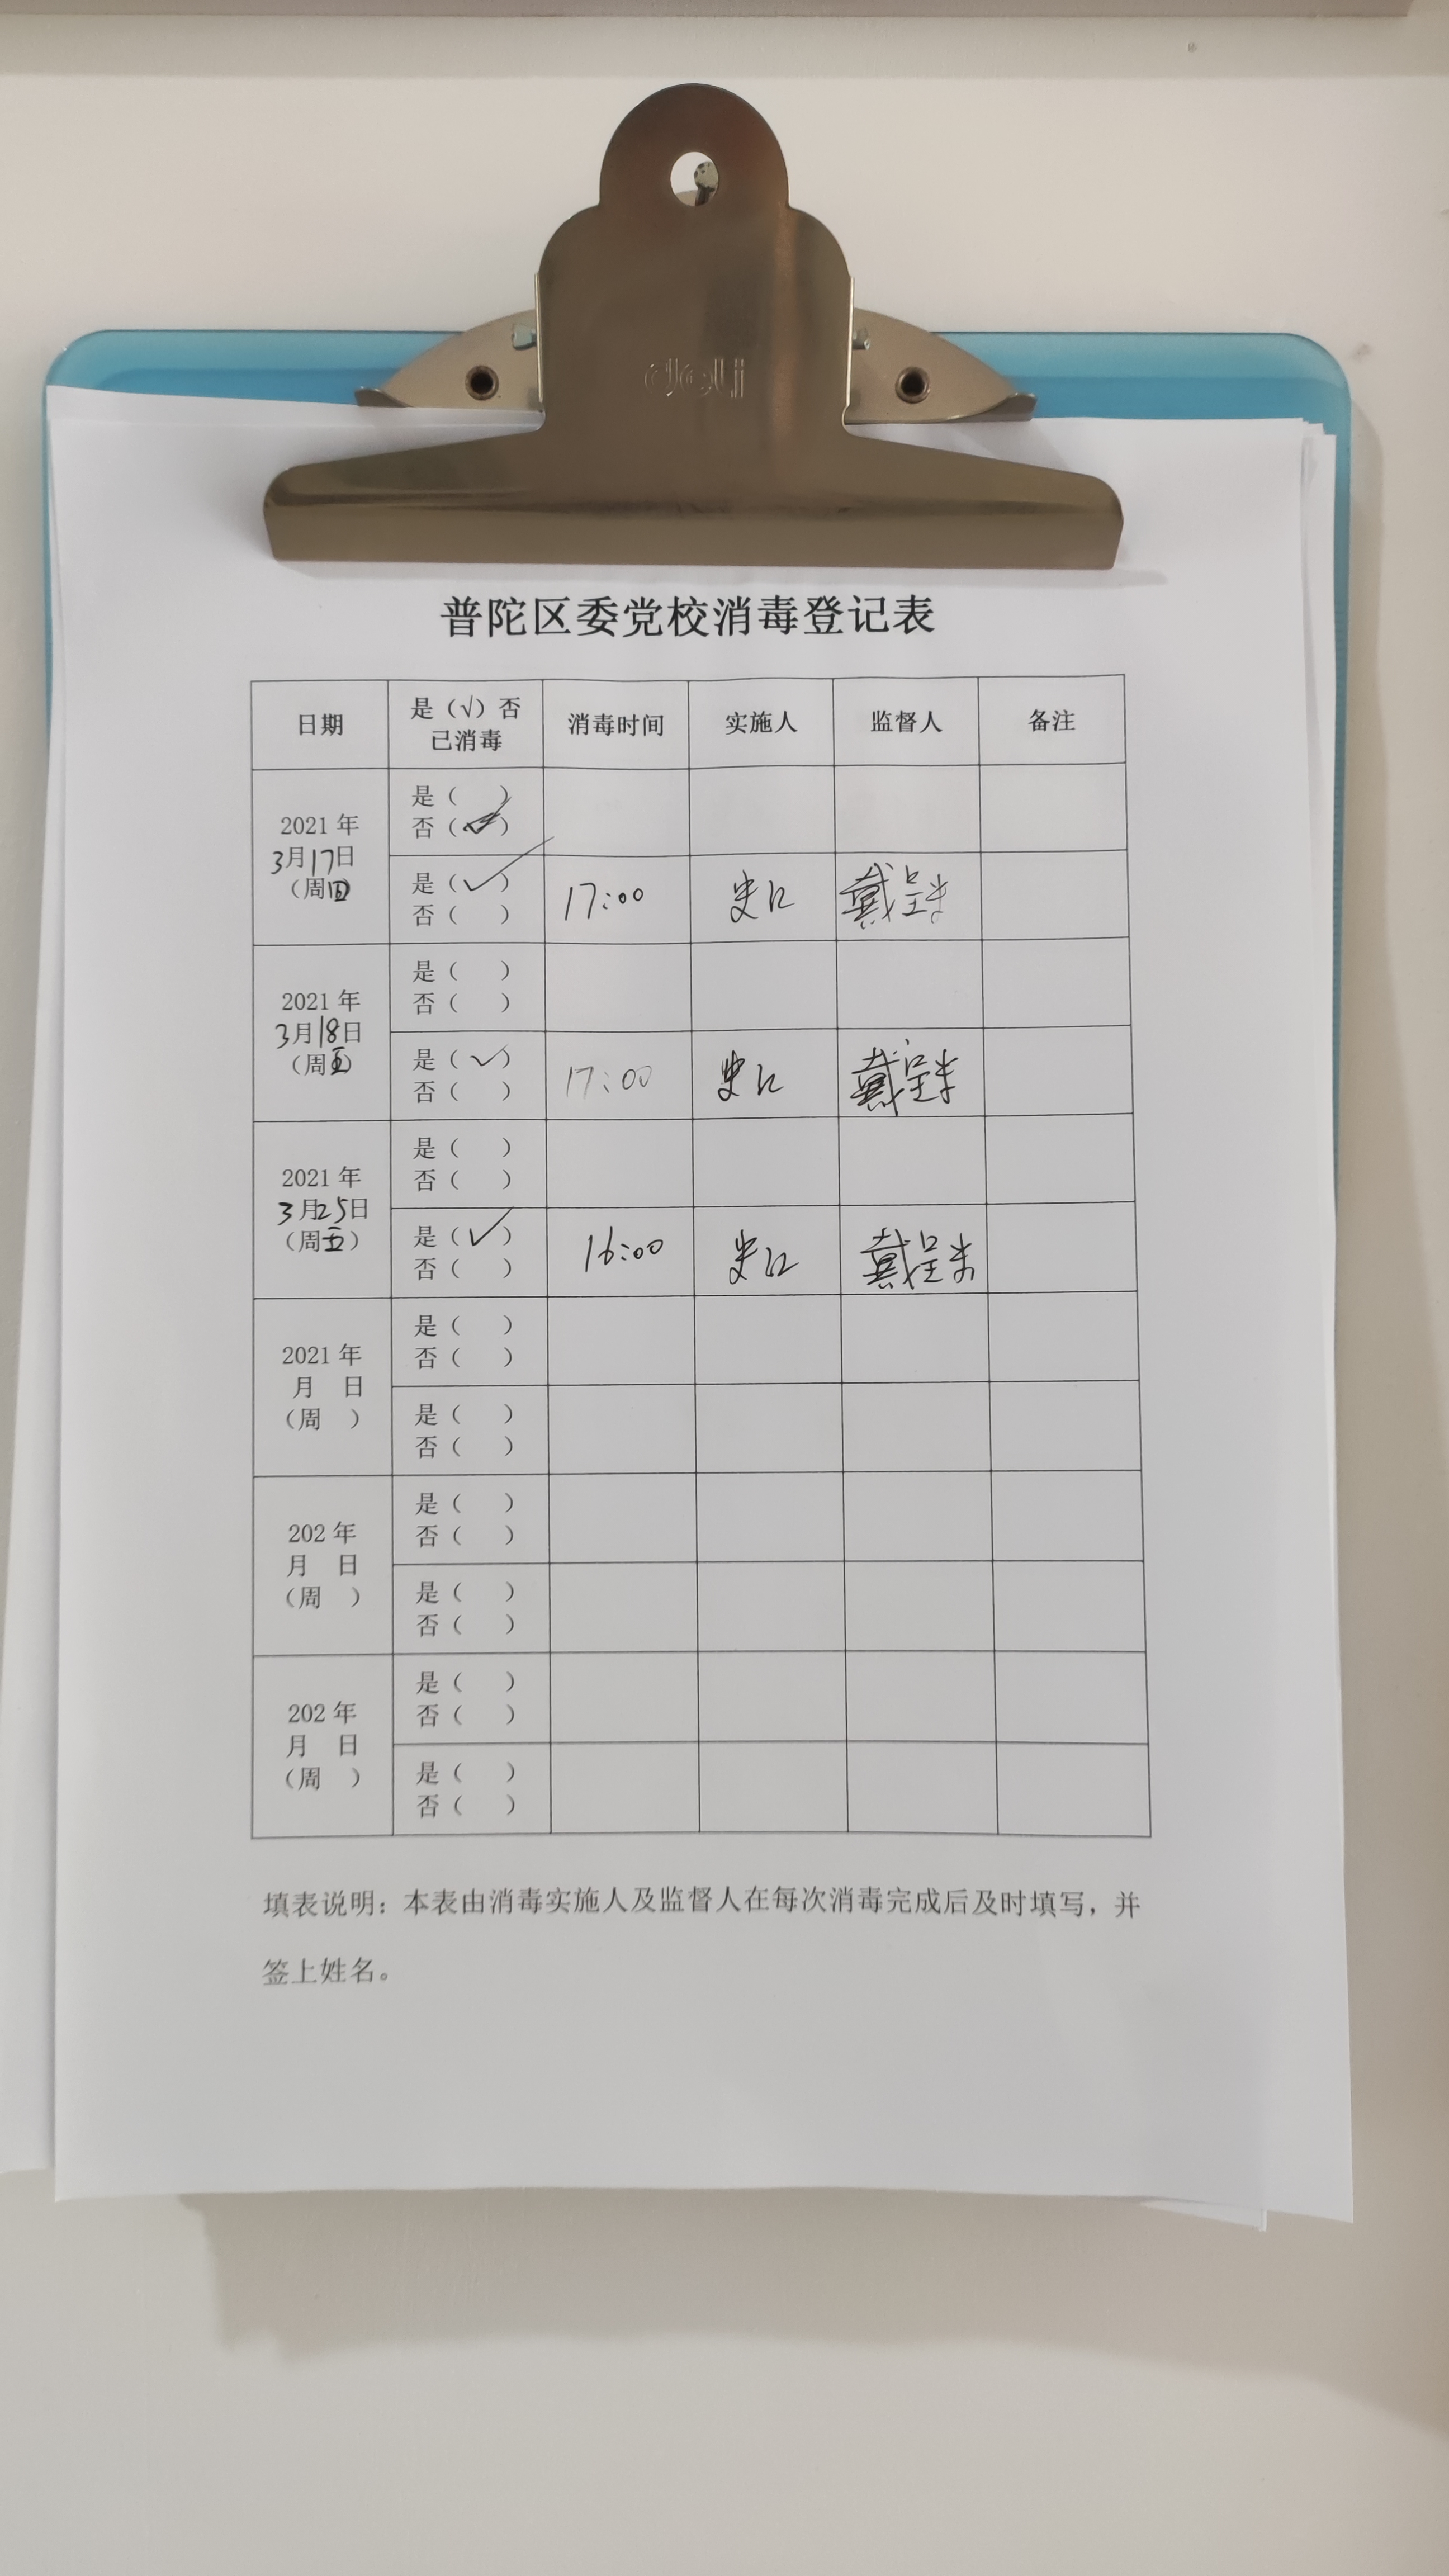 deli
普陀区委党校消毒登记表
日期 是（√）否 消毒时间 实施人 监督人 备注
已消毒
是（ ）
否（ ）
2021 年
3月17日
（周四）
是（✓）
否（ ）
17:00
戴
是（ ）
否（ ）
2021 年
3月18日
（周五）
是（✓）
否（ ）
17:00
戴
是（ ）
否（ ）
2021 年
3月25日
（周五）
是（✓）
否（ ）
16:00
戴
是（ ）
否（ ）
2021 年
月 日
（周 ）
是（ ）
否（ ）
是（ ）
否（ ）
202 年
月 日
（周 ）
是（ ）
否（ ）
是（ ）
否（ ）
202 年
月 日
（周 ）
是（ ）
否（ ）
填表说明：本表由消毒实施人及监督人在每次消毒完成后及时填写，并
签上姓名。